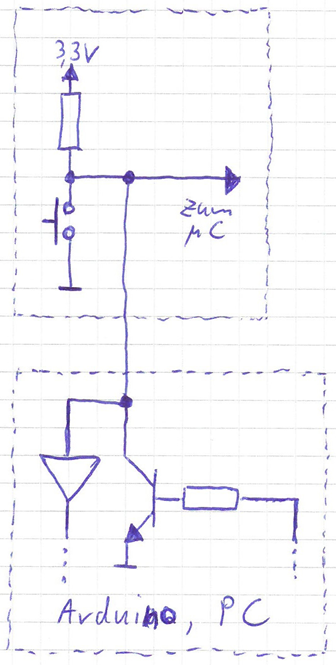 3,3V
zum
µC
Arduino, PC